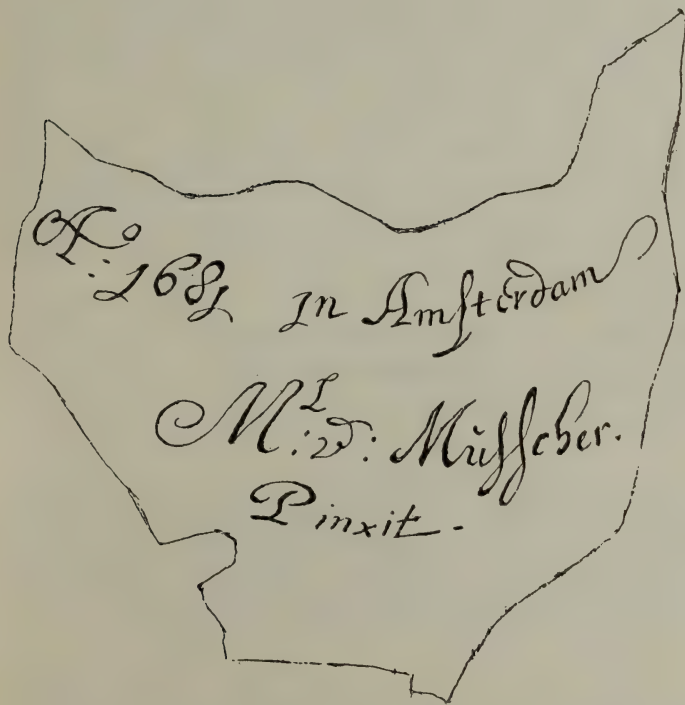 Ao: 1681 in Amsterdam
ML: v: Musscher.
Pinxit.